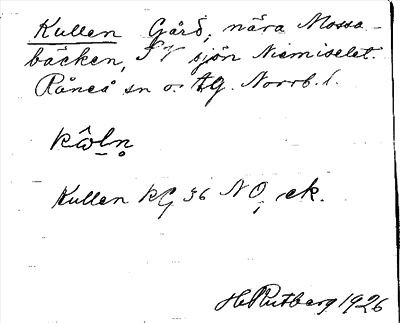 Kullen Gård, nära Mossa-
bäcken, SV sjön Niemiselet.
Råneå sn o. tg. Norrb. l.
Kullen kG 36 NO, ek.
H. Rutberg 1926